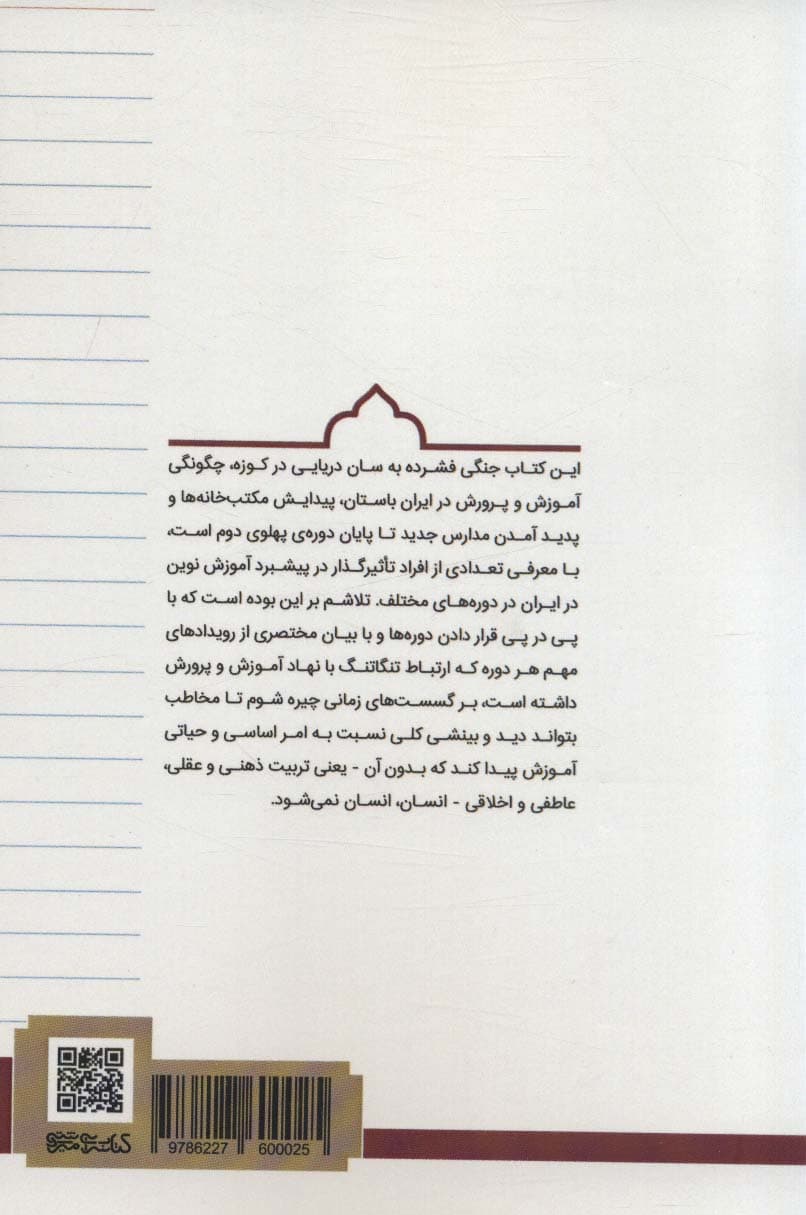 این کتاب جنگی فشرده به سان دریایی در کوزه، چگونگی
آموزش و پرورش در ایران باستان، پیدایش مکتب‌خانه‌ها و
پدید آمدن مدارس جدید تا پایان دوره‌ی پهلوی دوم است،
با معرفی تعدادی از افراد تأثیرگذار در پیشبرد آموزش نوین
در ایران در دوره‌های مختلف. تلاشم بر این بوده است که با
پی در پی قرار دادن دوره‌ها و با بیان مختصری از رویدادهای
مهم هر دوره که ارتباط تنگاتنگ با نهاد آموزش و پرورش
داشته است، بر گسست‌های زمانی چیره شوم تا مخاطب
بتواند دید و بینشی کلی نسبت به امر اساسی و حیاتی
آموزش پیدا کند که بدون آن - یعنی تربیت ذهنی و عقلی،
عاطفی و اخلاقی - انسان، انسان نمی‌شود.
9786227 600025